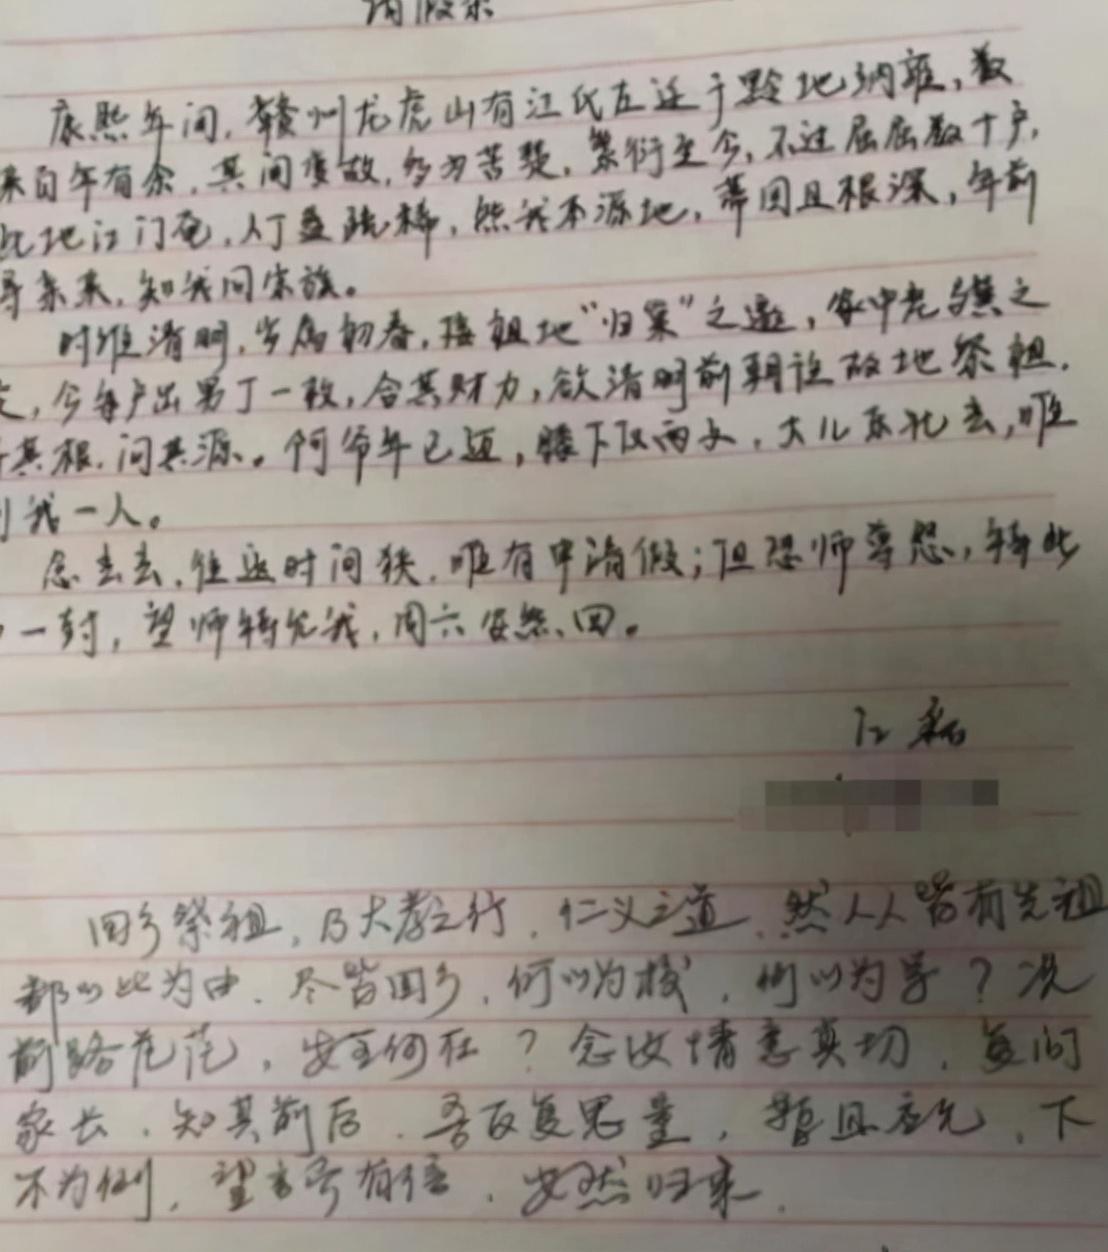 请假条
康熙年间，赣州龙虎山有江氏左迁于黔地纳雍，数
来百年有余，其间变故，多为苦楚，繁衍至今，不过屈屈数十户，
此地江门奄，人丁益疏稀，然我本源地，蒂固且根深，年前
寻亲来，知我同宗族。
时维清明，岁属初春，接祖地“归案”之邀，家中老与其之
，今每户出男丁一枚，合其财力，欲清明前朝往故地祭祖，
其根，问其源。阿爷年已迈，膝下仅两子，大儿东北去，唯
我一人。
念去去，往返时间狭，唯有申请假；但恐师尊怨，特此
一封，望师特允我，周六安然回。
江
回乡祭祖，乃大孝之行，仁义之道，然人人皆有先祖
都以此为由，尽皆回乡，何以为校，何以为学？况
前路茫茫，安全何在？念汝情意真切，复问
家长，知其前后，吾反复思量，暂且应允，下
不为例，望言而有信，安然归来。